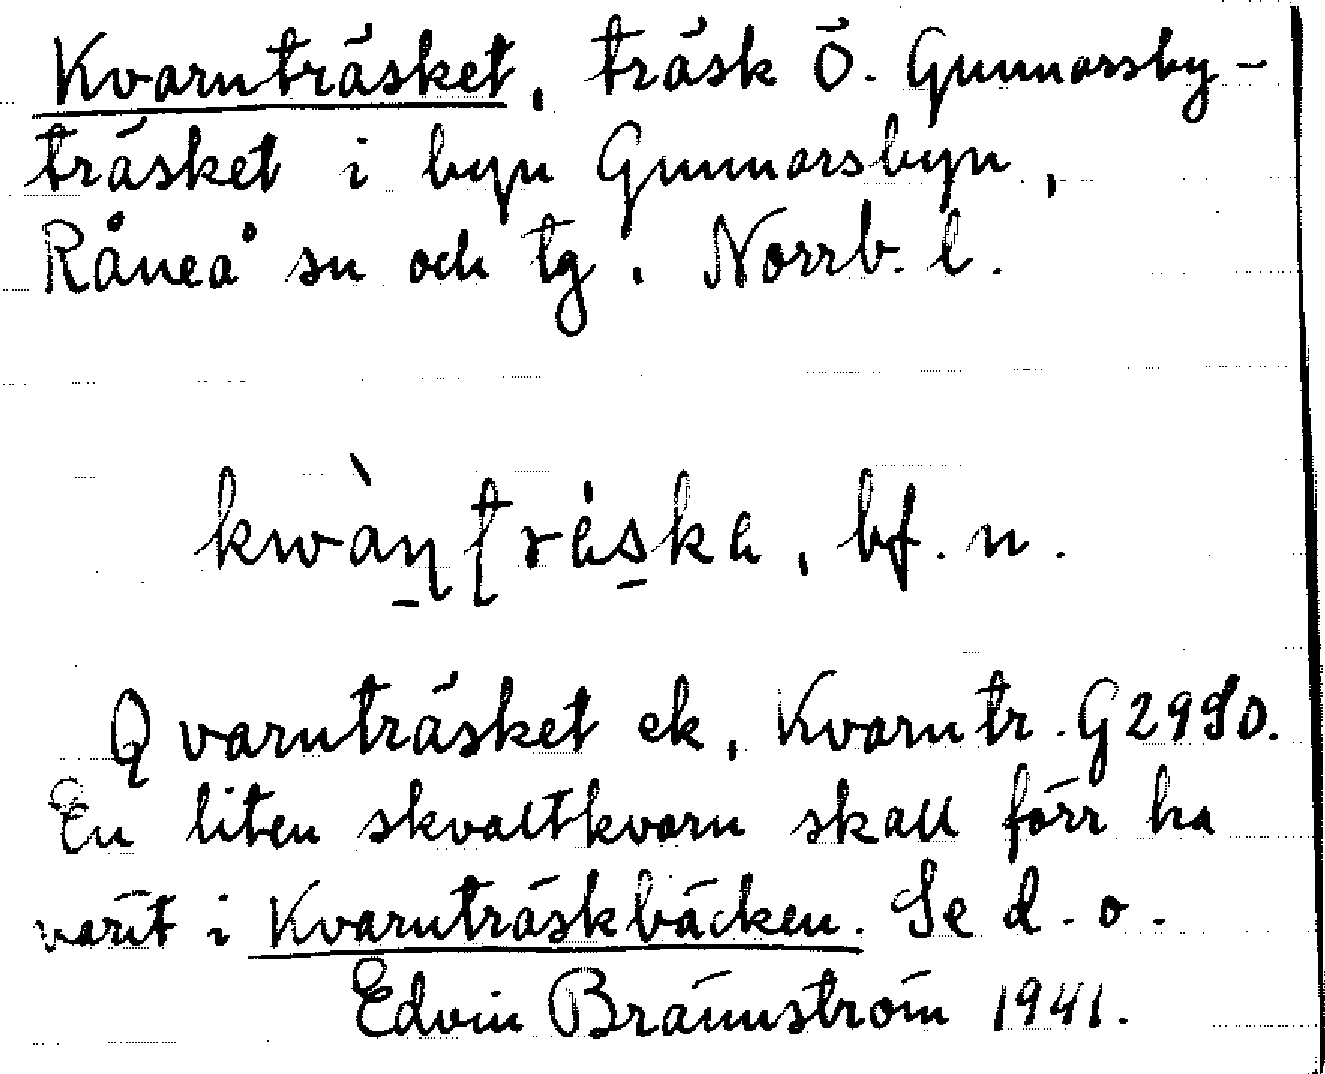 Kvarnträsket, träsk Ö. Gunnarsby-
träsket i byn Gunnarsbyn,
Råneå sn och tg. Norrb. l.
kwàṇṭrȧska, bf. n.
Qvarnträsket ek, Kvarntr. G2990.
En liten skvaltkvarn skall förr ha
varit i Kvarnträskbäcken. Se d. o.
Edvin Brännström 1941.